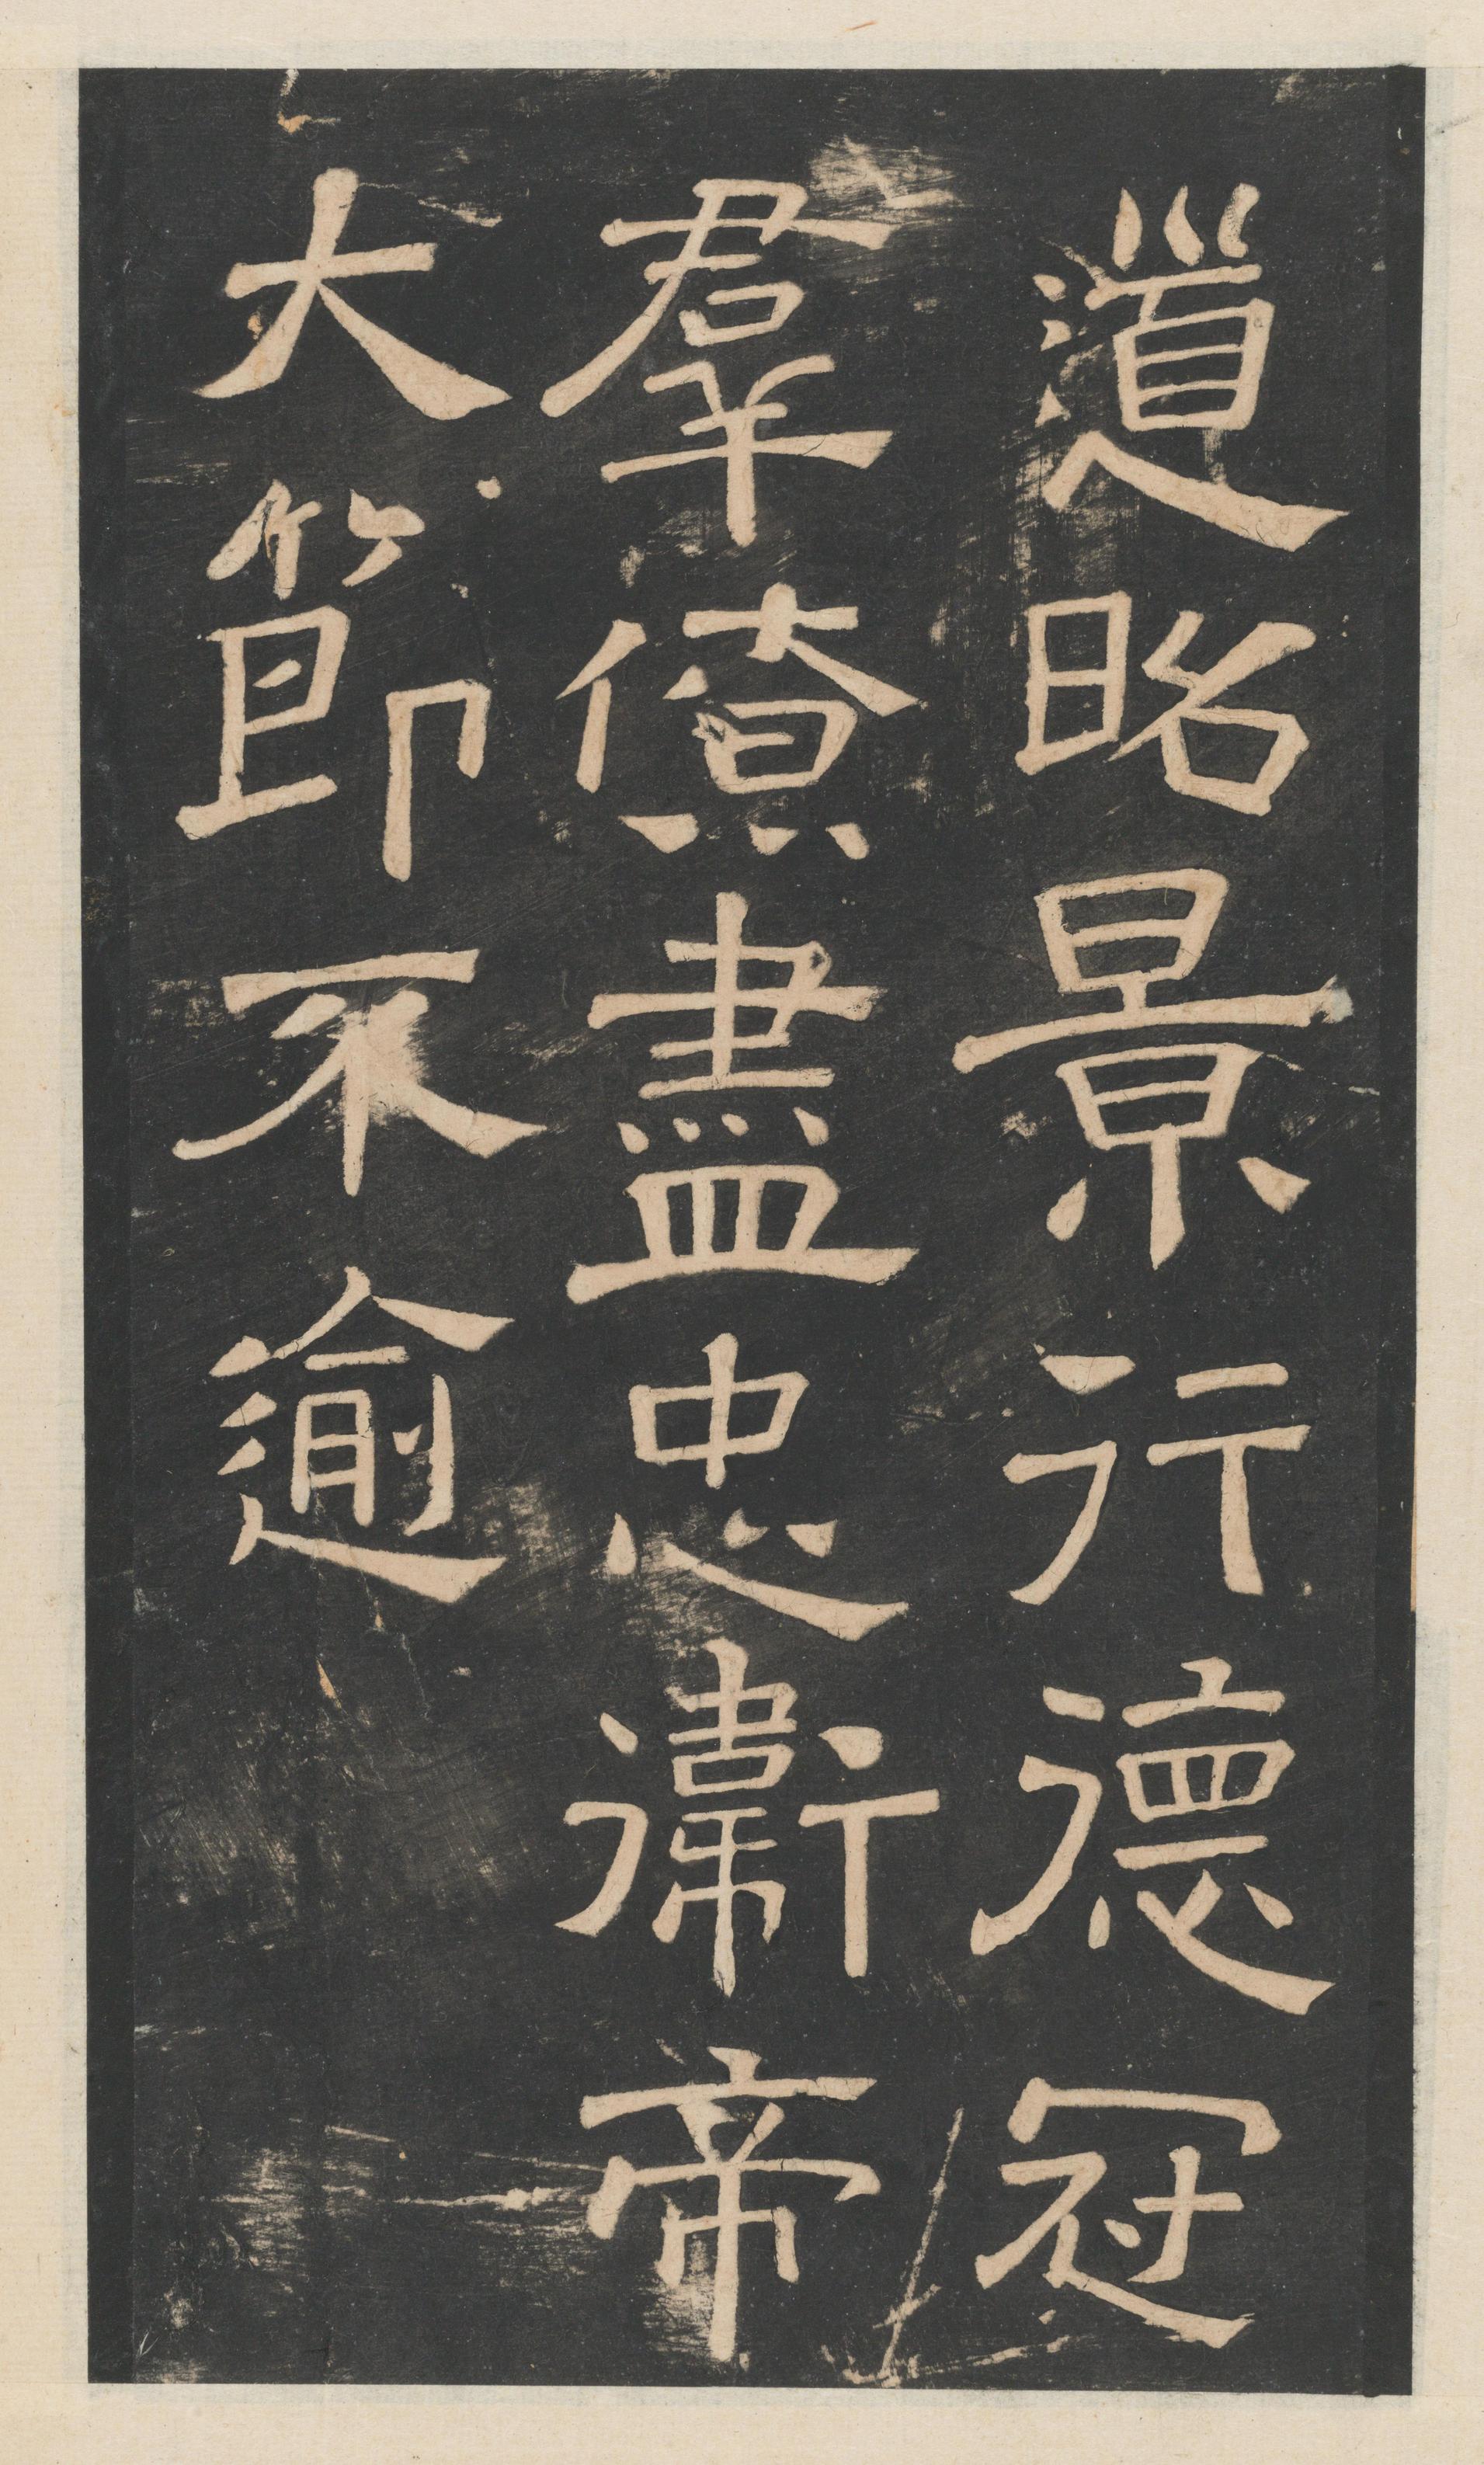 道昭景行德冠
羣僚盡忠衞帝
大節不逾